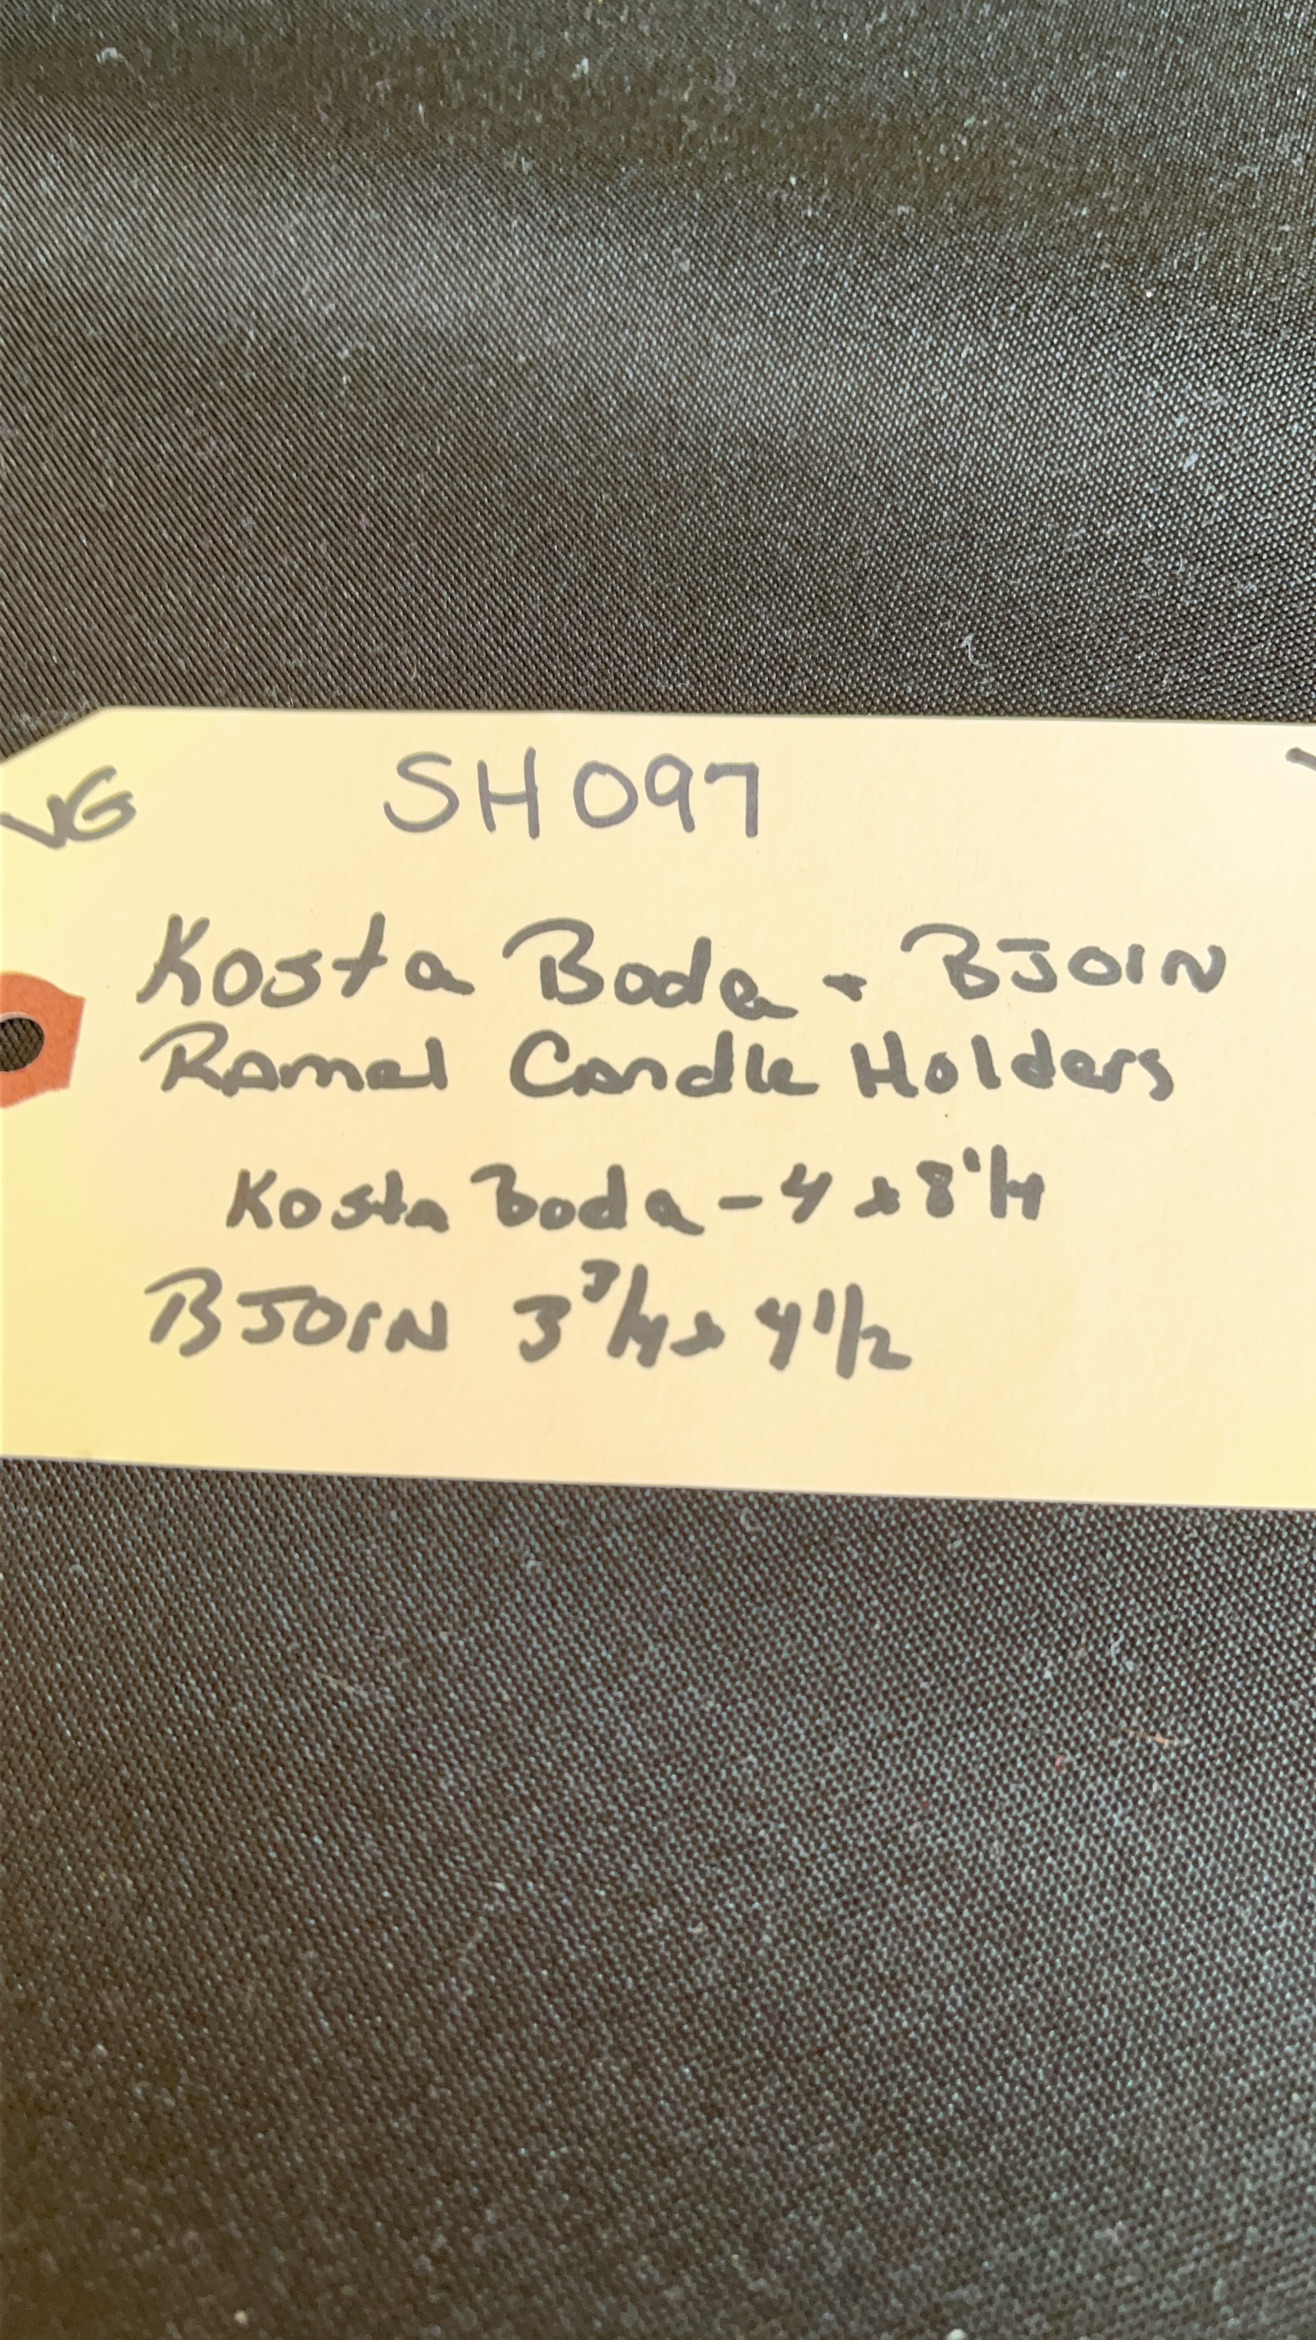 VG
SH097
Kosta Boda - BJOIN
Ramel Candle Holders
Kosta Boda - 4 x 8 1/4
BJOIN 3 3/4 x 4 1/2